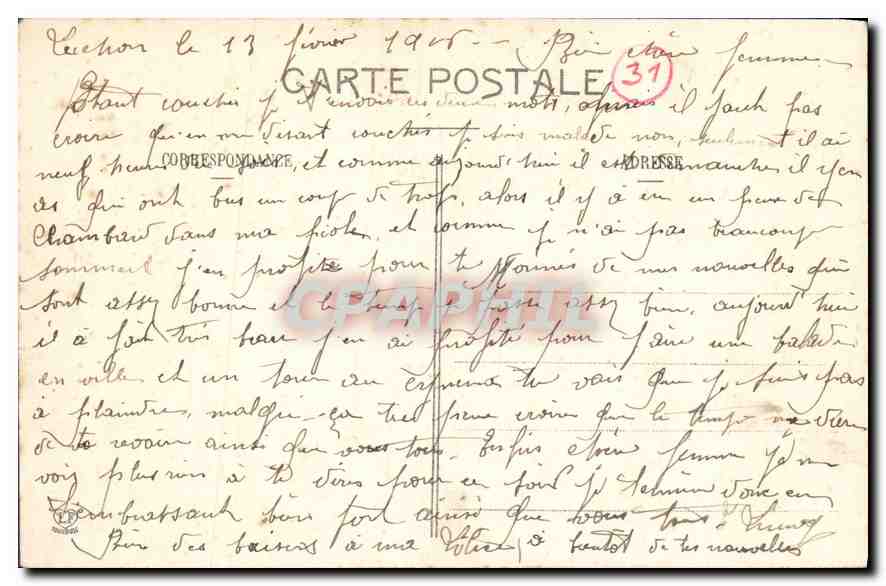 Luchon le 13 février 191 -- Bien chère femme
CARTE POSTALE
31
Etant couchés je t'envoie ces deux mots, il faut pas
croire qu'en me disant couchés je sois malade non, seulement il ai
neuf heures du et comme aujourd'hui il est dimanche il y en
CORRESPONDANCE
ADRESSE
as qui ont bus un coup de trop, alors il y à eu un peu de
Chambard dans ma piole, et comme je n'ai pas beaucoup
sommeil j'en profite pour te données de mes nouvelles qui
sont assez bonne et le temps passe assez bien, aujourd'hui
il à fait très beau j'en ai profité pour faire une balade
en ville et un tour au tu vois que je suis pas
à plaindre, malgré ça tu peux croire que le temps me dure
de te revoir ainsi que vous tous. Enfin chère femme je ne
vois plus rien à te dire pour ce soir je termine donc en
t'embrassant bien fort ainsi que vous tous.
Bien des baisers à ma à bientôt de tes nouvelles
CPAPHIL